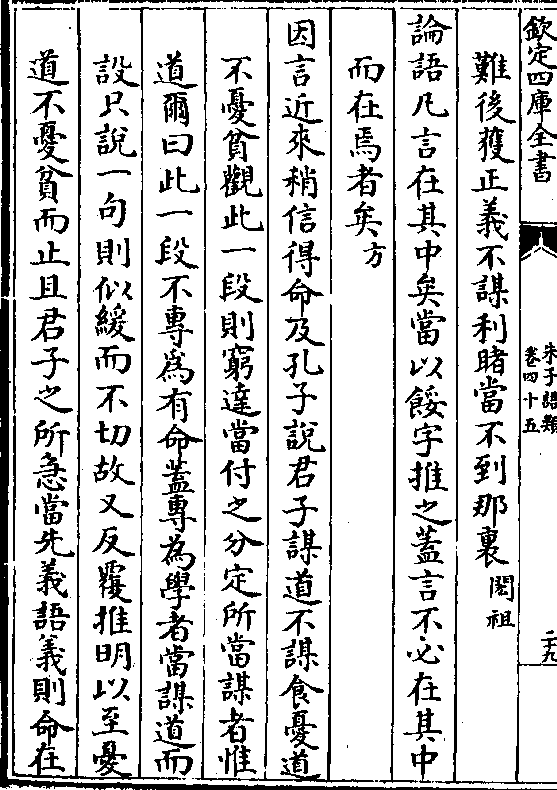 欽定四庫全書
朱子語類
卷四十五
二十九
難後獲正義不謀利睹當不到那裏閎祖
論語凡言在其中矣當以餒字推之蓋言不必在其中
而在焉者矣方
因言近來稍信得命及孔子說君子謀道不謀食憂道
不憂貧觀此一段則窮達當付之分定所當謀者惟
道爾曰此一段不專為有命蓋專為學者當謀道而
設只說一句則似緩而不切故又反覆推明以至憂
道不憂貧而止且君子之所急當先義語義則命在